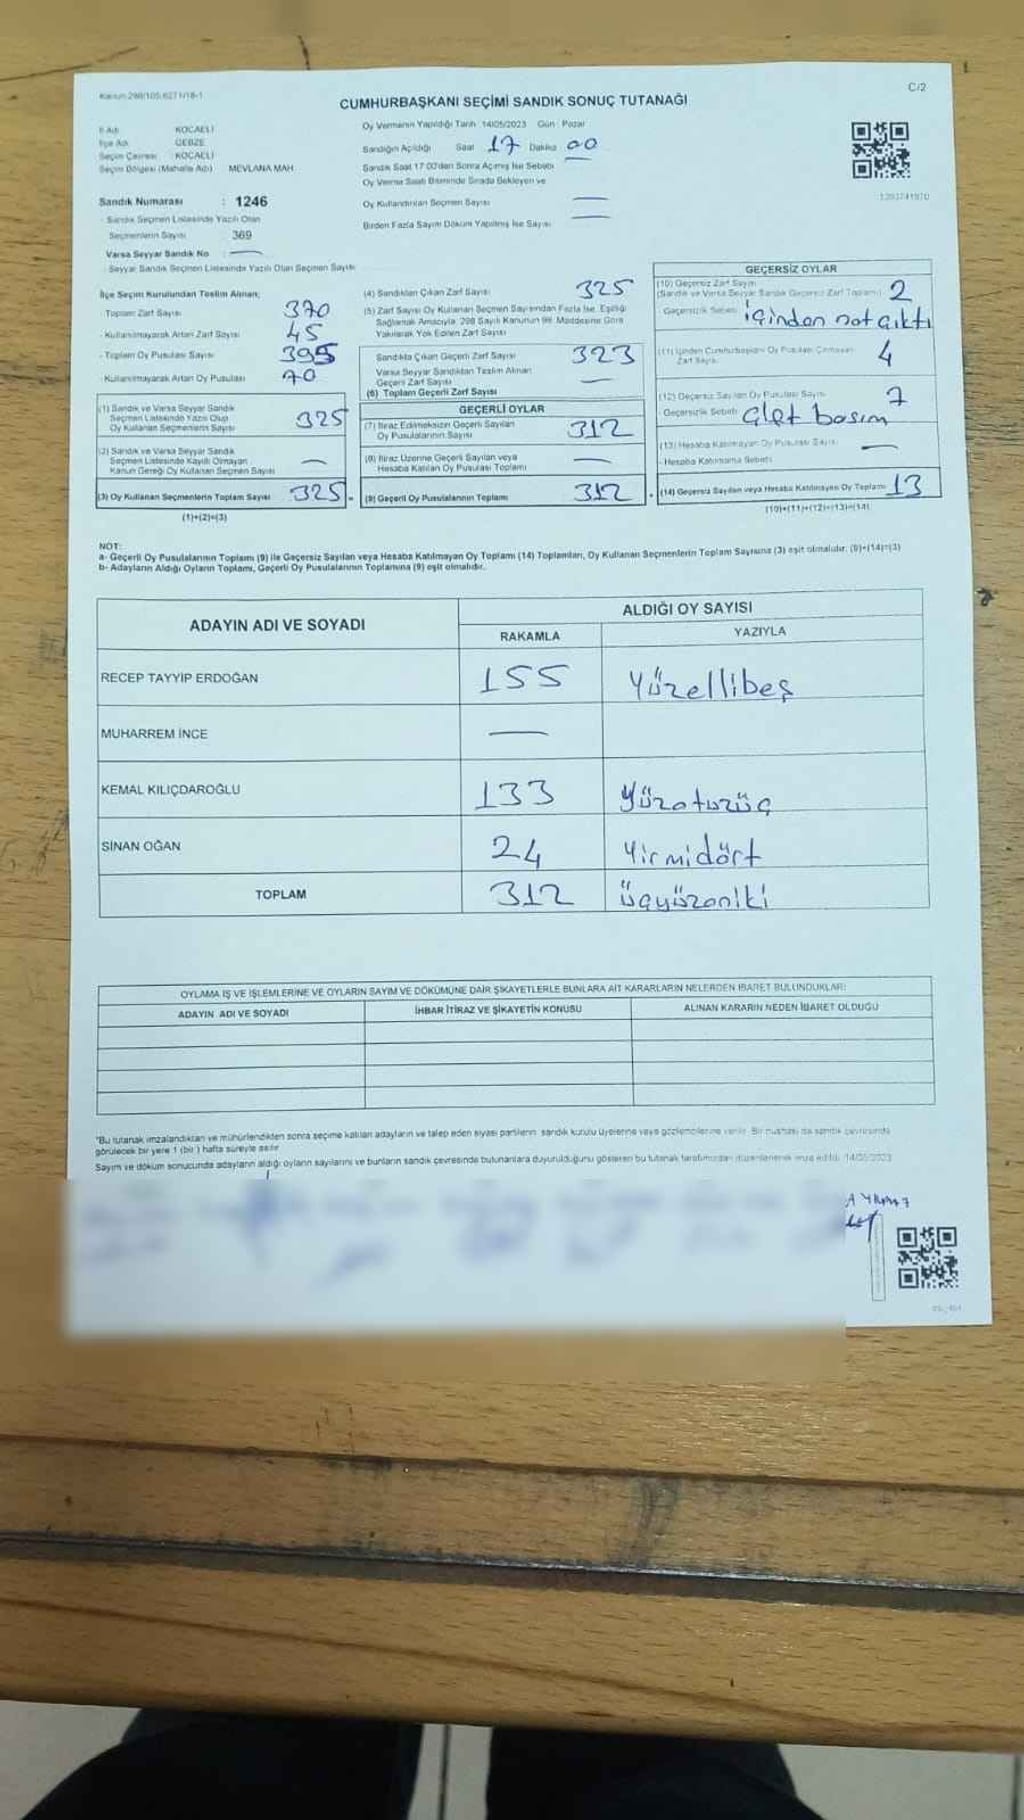 Kanun:298/105,6271/18-1
C/2
CUMHURBAŞKANI SEÇİMİ SANDIK SONUÇ TUTANAĞI
İl Adı KOCAELİ
İlçe Adı GEBZE
Seçim Çevresi KOCAELİ
Seçim Bölgesi (Mahalle Adı) MEVLANA MAH.
Sandık Numarası : 1246
- Sandık Seçmen Listesinde Yazılı Olan
Seçmenlerin Sayısı 369
Varsa Seyyar Sandık No : —
- Seyyar Sandık Seçmen Listesinde Yazılı Olan Seçmen Sayısı
Oy Vermenin Yapıldığı Tarih 14/05/2023 Gün : Pazar
Sandığın Açıldığı Saat 17 Dakika 00
Sandık Saat 17:00'den Sonra Açılmış İse Sebebi —
Oy Verme Saati Bitiminde Sırada Bekleyen ve
Oy Kullandırılan Seçmen Sayısı —
Birden Fazla Sayım Döküm Yapılmış İse Sayısı —
1393741970
İlçe Seçim Kurulundan Teslim Alınan;
- Toplam Zarf Sayısı 370
- Kullanılmayarak Artan Zarf Sayısı 45
- Toplam Oy Pusulası Sayısı 395
- Kullanılmayarak Artan Oy Pusulası 70
(1) Sandık ve Varsa Seyyar Sandık
Seçmen Listesinde Yazılı Olup
Oy Kullanan Seçmenlerin Sayısı 325
(2) Sandık ve Varsa Seyyar Sandık
Seçmen Listesinde Kayıtlı Olmayan
Kanun Gereği Oy Kullanan Seçmen Sayısı —
(3) Oy Kullanan Seçmenlerin Toplam Sayısı 325 =
(1)+(2)=(3)
(4) Sandıktan Çıkan Zarf Sayısı 325
(5) Zarf Sayısı Oy Kullanan Seçmen Sayısından Fazla İse, Eşitliği
Sağlamak Amacıyla; 298 Sayılı Kanunun 98. Maddesine Göre
Yakılarak Yok Edilen Zarf Sayısı
Sandıkta Çıkan Geçerli Zarf Sayısı 323
Varsa Seyyar Sandıktan Teslim Alınan
Geçerli Zarf Sayısı —
(6) Toplam Geçerli Zarf Sayısı
GEÇERLİ OYLAR
(7) İtiraz Edilmeksizin Geçerli Sayılan
Oy Pusulalarının Sayısı 312
(8) İtiraz Üzerine Geçerli Sayılan veya
Hesaba Katılan Oy Pusulası Toplamı —
(9) Geçerli Oy Pusulalarının Toplamı 312 +
GEÇERSİZ OYLAR
(10) Geçersiz Zarf Sayısı 2
(Sandık ve Varsa Seyyar Sandık Geçersiz Zarf Toplamı)
- Geçersizlik Sebebi içinden not çıktı
(11) İçinden Cumhurbaşkanı Oy Pusulası Çıkmayan
Zarf Sayısı 4
(12) Geçersiz Sayılan Oy Pusulası Sayısı 7
- Geçersizlik Sebebi alet basım
(13) Hesaba Katılmayan Oy Pusulası Sayısı —
- Hesaba Katılmama Sebebi
(14) Geçersiz Sayılan veya Hesaba Katılmayan Oy Toplamı 13
(10)+(11)+(12)+(13)=(14)
NOT:
a- Geçerli Oy Pusulalarının Toplamı (9) ile Geçersiz Sayılan veya Hesaba Katılmayan Oy Toplamı (14) Toplamları, Oy Kullanan Seçmenlerin Toplam Sayısına (3) eşit olmalıdır. (9)+(14)=(3)
b- Adayların Aldığı Oyların Toplamı, Geçerli Oy Pusulalarının Toplamına (9) eşit olmalıdır.
ADAYIN ADI VE SOYADI
ALDIĞI OY SAYISI
RAKAMLA YAZIYLA
RECEP TAYYİP ERDOĞAN 155 Yüzellibeş
MUHARREM İNCE —
KEMAL KILIÇDAROĞLU 133 Yüzotuzüç
SİNAN OĞAN 24 Yirmidört
TOPLAM 312 üçyüzoniki
OYLAMA İŞ VE İŞLEMLERİNE VE OYLARIN SAYIM VE DÖKÜMÜNE DAİR ŞİKAYETLERLE BUNLARA AİT KARARLARIN NELERDEN İBARET BULUNDUKLARI
ADAYIN ADI VE SOYADI İHBAR İTİRAZ VE ŞİKAYETİN KONUSU ALINAN KARARIN NEDEN İBARET OLDUĞU
"Bu tutanak imzalandıktan ve mühürlendikten sonra seçime katılan adayların ve talep eden siyasi partilerin sandık kurulu üyelerine veya gözlemcilerine verilir. Bir nushası da sandık çevresinde
görülecek bir yere 1 (bir) hafta süreyle asılır.
Sayım ve döküm sonucunda adayların aldığı oyların sayılarını ve bunların sandık çevresinde bulunanlara duyurulduğunu gösteren bu tutanak tarafımızdan düzenlenerek imza edildi. 14/05/2023